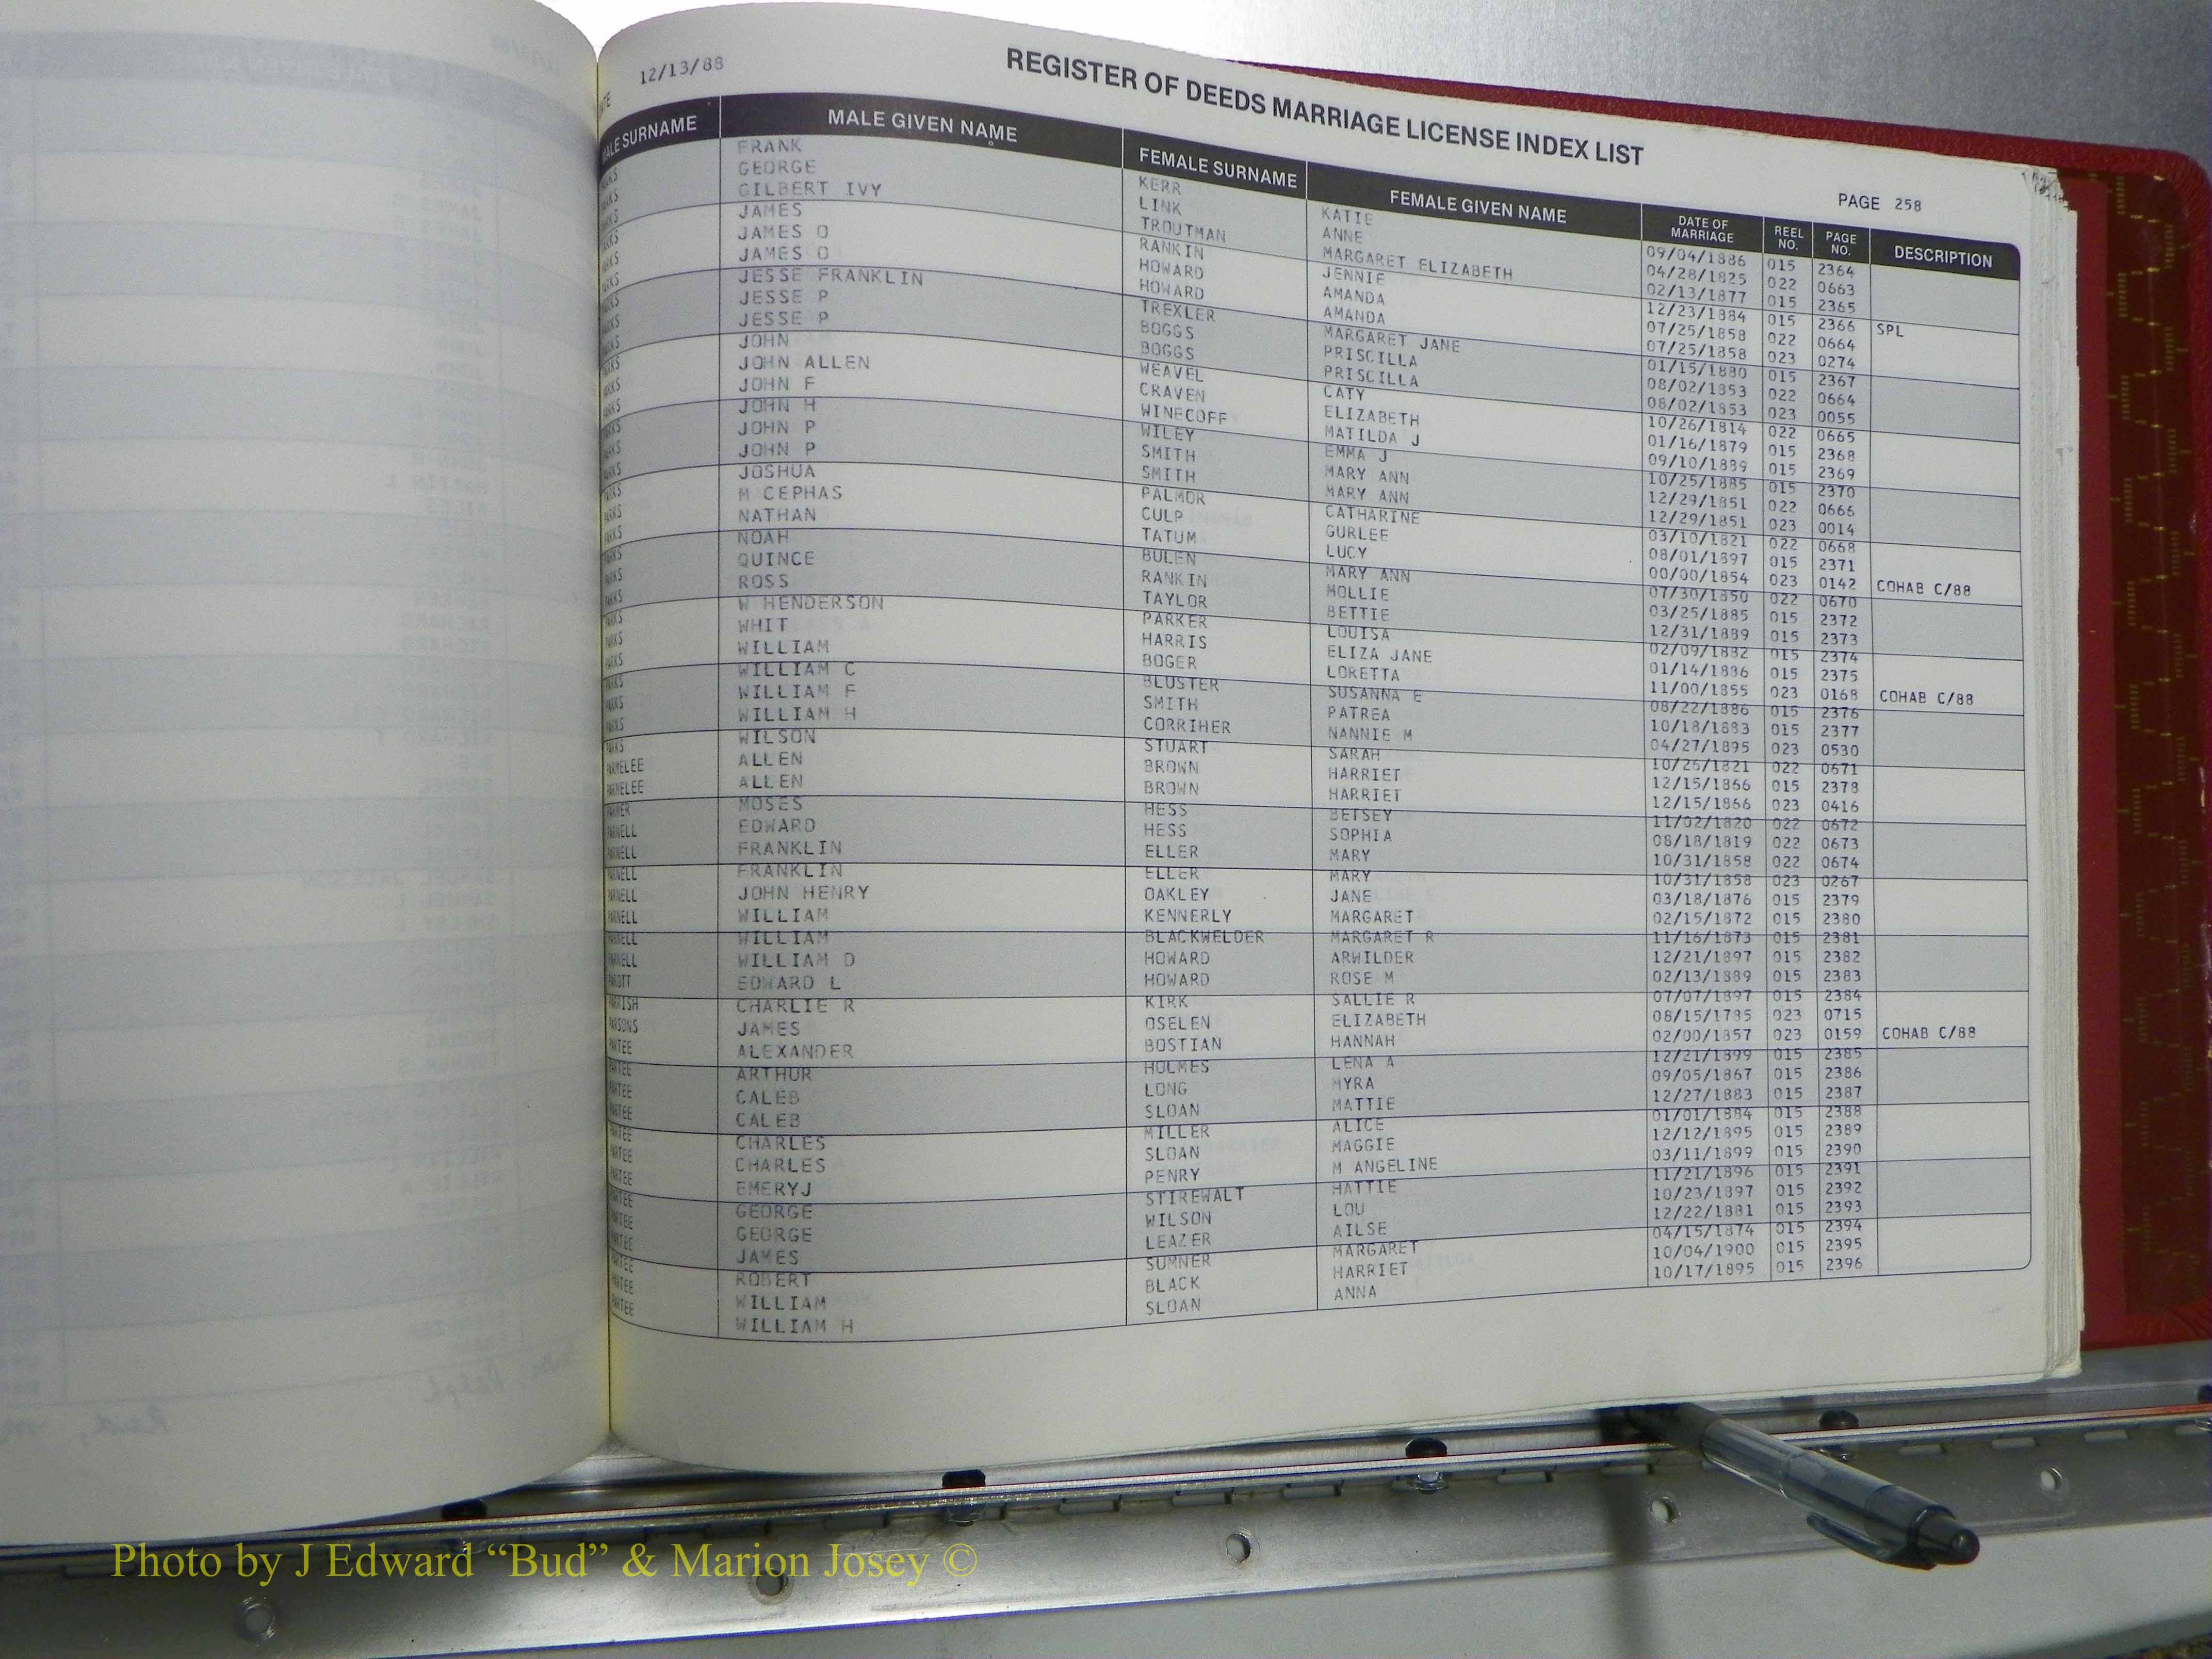 12/13/88
REGISTER OF DEEDS MARRIAGE LICENSE INDEX LIST
PAGE 258
MALE SURNAME MALE GIVEN NAME FEMALE SURNAME FEMALE GIVEN NAME DATE OF MARRIAGE REEL NO. PAGE NO. DESCRIPTION
PARKS FRANK KERR KATIE 09/04/1886 015 2364
PARKS GEORGE LINK ANNE 04/28/1825 022 0663
PARKS GILBERT IVY TROUTMAN MARGARET ELIZABETH 02/13/1877 015 2365
PARKS JAMES RANKIN JENNIE 12/23/1884 015 2366 SPL
PARKS JAMES O HOWARD AMANDA 07/25/1858 022 0664
PARKS JAMES O HOWARD AMANDA 07/25/1858 023 0274
PARKS JESSE FRANKLIN TREXLER MARGARET JANE 01/15/1880 015 2367
PARKS JESSE P BOGGS PRISCILLA 08/02/1853 022 0664
PARKS JESSE P BOGGS PRISCILLA 08/02/1853 023 0055
PARKS JOHN WEAVEL CATY 10/26/1814 022 0665
PARKS JOHN ALLEN CRAVEN ELIZABETH 01/16/1879 015 2368
PARKS JOHN F WINECOFF MATILDA J 09/10/1889 015 2369
PARKS JOHN H WILEY EMMA J 10/25/1885 015 2370
PARKS JOHN P SMITH MARY ANN 12/29/1851 022 0666
PARKS JOHN P SMITH MARY ANN 12/29/1851 023 0014
PARKS JOSHUA PALMOR CATHARINE 03/10/1821 022 0668
PARKS M CEPHAS CULP GURLEE 08/01/1897 015 2371
PARKS NATHAN TATUM LUCY 00/00/1854 023 0142 COHAB C/88
PARKS NOAH BULEN MARY ANN 07/30/1850 022 0670
PARKS QUINCE RANKIN MOLLIE 03/25/1885 015 2372
PARKS ROSS TAYLOR BETTIE 12/31/1889 015 2373
PARKS W HENDERSON PARKER LOUISA 02/09/1882 015 2374
PARKS WHIT HARRIS ELIZA JANE 01/14/1886 015 2375
PARKS WILLIAM BOGER LORETTA 11/00/1855 023 0168 COHAB C/88
PARKS WILLIAM C BLUSTER SUSANNA E 08/22/1886 015 2376
PARKS WILLIAM F SMITH PATREA 10/18/1883 015 2377
PARKS WILLIAM H CORRIHER NANNIE M 04/27/1895 023 0530
PARKS WILSON STUART SARAH 10/25/1821 022 0671
PARMELEE ALLEN BROWN HARRIET 12/15/1866 015 2378
PARMELEE ALLEN BROWN HARRIET 12/15/1866 023 0416
PARNER MOSES HESS BETSEY 11/02/1820 022 0672
PARNELL EDWARD HESS SOPHIA 08/18/1819 022 0673
PARNELL FRANKLIN ELLER MARY 10/31/1858 022 0674
PARNELL FRANKLIN ELLER MARY 10/31/1858 023 0267
PARNELL JOHN HENRY OAKLEY JANE 03/18/1876 015 2379
PARNELL WILLIAM KENNERLY MARGARET 02/15/1872 015 2380
PARNELL WILLIAM BLACKWELDER MARGARET R 11/16/1873 015 2381
PARNELL WILLIAM D HOWARD ARWILDER 12/21/1897 015 2382
PAROTT EDWARD L HOWARD ROSE M 02/13/1889 015 2383
PARRISH CHARLIE R KIRK SALLIE R 07/07/1897 015 2384
PARSONS JAMES OSELEN ELIZABETH 08/15/1785 023 0715
PARTEE ALEXANDER BOSTIAN HANNAH 02/00/1857 023 0159 COHAB C/88
PARTEE ARTHUR HOLMES LENA A 12/21/1899 015 2385
PARTEE CALEB LONG MYRA 09/05/1867 015 2386
PARTEE CALEB SLOAN MATTIE 12/27/1883 015 2387
PARTEE CHARLES MILLER ALICE 01/01/1884 015 2388
PARTEE CHARLES SLOAN MAGGIE 12/12/1895 015 2389
PARTEE EMERYJ PENRY M ANGELINE 03/11/1899 015 2390
PARTEE GEORGE STIREWALT HATTIE 11/21/1896 015 2391
PARTEE GEORGE WILSON LOU 10/23/1897 015 2392
PARTEE JAMES LEAZER AILSE 12/22/1881 015 2393
PARTEE ROBERT SUMNER MARGARET 04/15/1874 015 2394
PARTEE WILLIAM BLACK HARRIET 10/04/1900 015 2395
PARTEE WILLIAM H SLOAN ANNA 10/17/1895 015 2396
Photo by J Edward “Bud” & Marion Josey ©